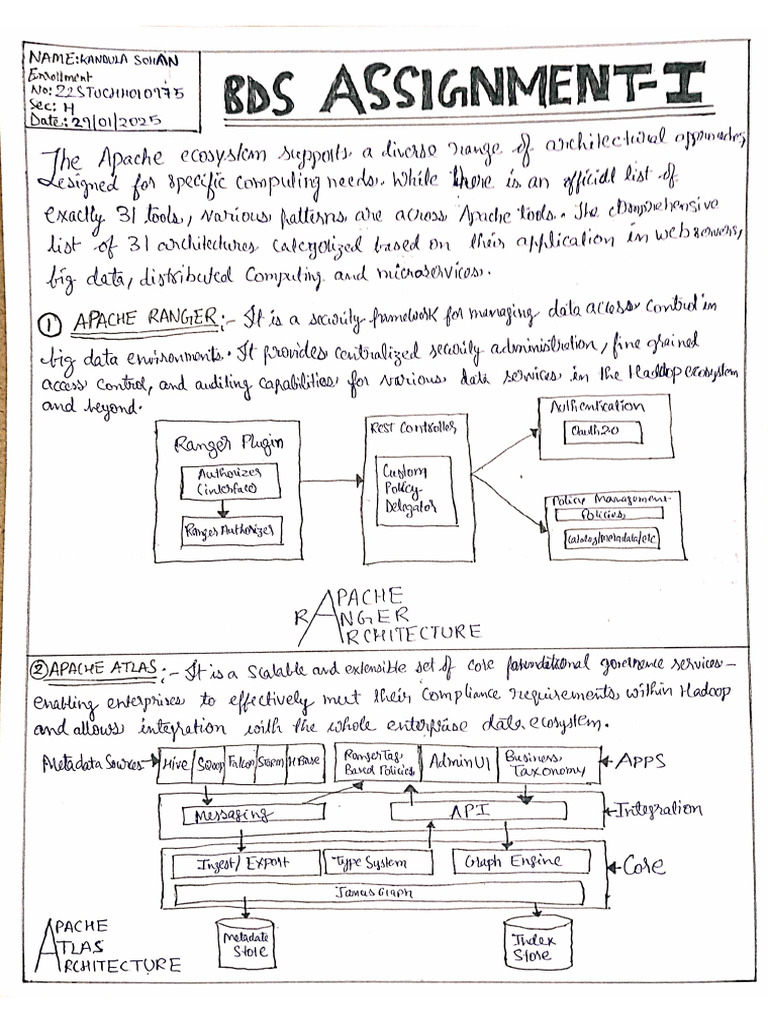 NAME: KANDULA SOHAN
Enrollment
No: 22STUCHH010975
Sec: H
Date: 29/01/2025
BDS ASSIGNMENT-I
The Apache ecosystem supports a diverse range of architectural approaches,
designed for specific computing needs. While there is an official list of
exactly 31 tools, various patterns are across Apache tools. The comprehensive
list of 31 architectures categorized based on their application in web servers,
big data, distributed computing and microservices.
① APACHE RANGER:- It is a security framework for managing data access control in
big data environments. It provides centralized security administration, fine grained
access control, and auditing capabilities for various data services in the Haddop ecosystem
and beyond.
Ranger Plugin
Authorizer
(interface)
Ranger Authorizer
REST Controller
Custom
Policy
Delegator
Authentication
Oauth20
Policy Management
Policies
Catalog/metadata/etc
APACHE
RANGER
ARCHITECTURE
② APACHE ATLAS:- It is a scalable and extensible set of core foundational governance services-
enabling enterprises to effectively meet their compliance requirements within Hadoop
and allows integration with the whole enterprise data ecosystem.
Metadata Sources
Hive
Sqoop
Falcon
Storm
HBase
Ranger Tag
Based Policies
Admin UI
Business
Taxonomy
Apps
Messaging
API
Integration
Ingest/Export
Type System
Graph Engine
Core
Janus Graph
Metadata
Store
Index
Store
APACHE
ATLAS
ARCHITECTURE